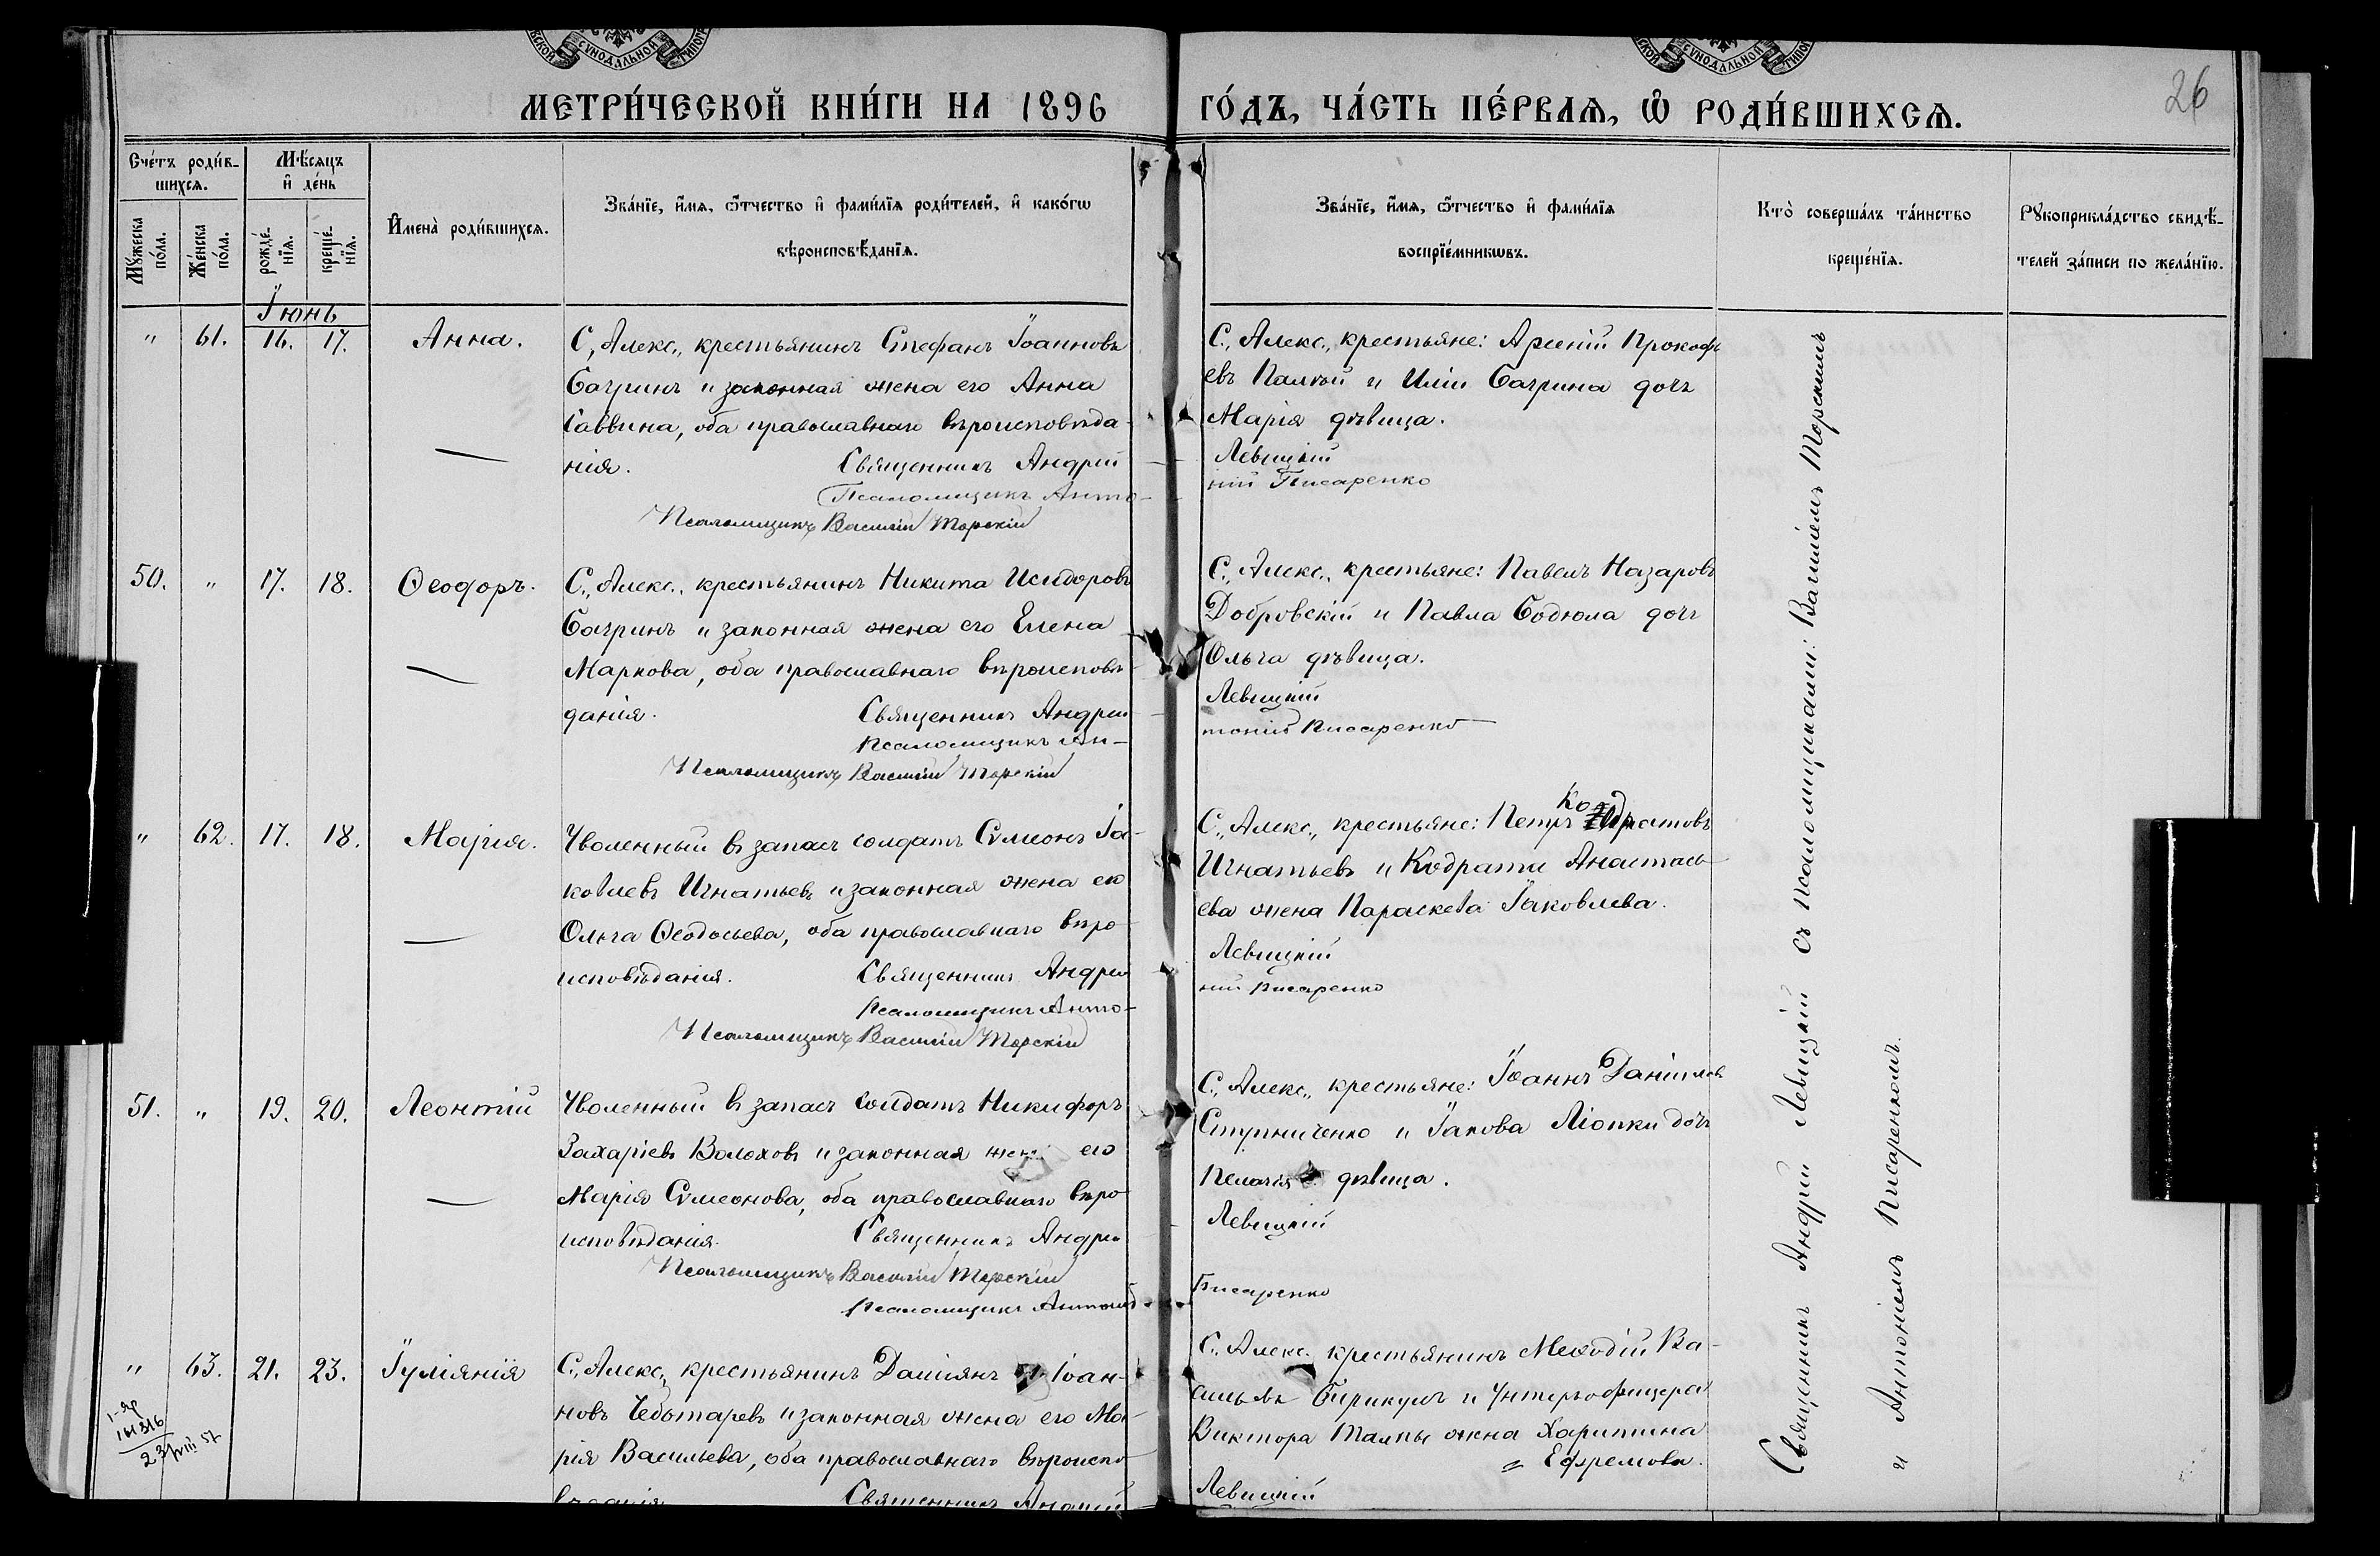 СѴНОДАЛЬНОЙ
СѴНОДАЛЬНОЙ
26
МЕТРИ́ЧЕСКОЙ КНИ́ГИ НА 1896 ГО́ДЪ, ЧА́СТЬ ПЕ́РВАѦ, Ѡ РОДИ́ВШИХСѦ.
Сче́тъ роди́в-
шихсѧ.
Мꙋ́жеска по́ла.
Же́нска по́ла.
Мѣ́сѧцъ
и де́нь
рожде́-нїѧ.
креще́-нїѧ.
И҆мена̀ роди́вшихсѧ.
Зва́нїе, и҆́мѧ, ѻ҆́тчество и҆ фами́лїѧ роди́телей, и҆ како́гѡ
вѣроисповѣ́данїѧ.
Зва́нїе, и҆́мѧ, ѻ҆́тчество и҆ фами́лїѧ
воспрїе́мникѡвъ.
Кто̀ соверша́лъ та́инство
креще́нїѧ.
Рꙋкоприкла́дство свидѣ́-
телей за́писи по жела́нїю.
Іюнь
" 61. 16. 17. Анна.
С. Алекс., крестьянинъ Стефанъ Іоанновъ
Багринъ и законная жена его Анна
Саввина, оба православнаго вѣроисповѣда-
нія. Священникъ Андрей
Псаломщикъ Анто-
Псаломщикъ Василій Торскій
С., Алекс., крестьяне: Арсеній Прокофь
евъ Палкой и Иліи Багрина дочь
Марія дѣвица.
Левицкій
ній Писаренко
50. " 17. 18. Ѳеодоръ.
С., Алекс., крестьянинъ Никита Исидоровъ
Багринъ и законная жена его Елена
Маркова, оба православнаго вѣроисповѣ-
данія. Священникъ Андрей
Псаломщикъ Ан-
Псаломщикъ Василій Торскій
С., Алекс., крестьяне: Павелъ Назаровъ
Добровскій и Павла Бодюла дочь
Ольга дѣвица.
Левицкій
тоній Писаренко
" 62. 17. 18. Марія.
Уволенный въ запасъ солдатъ Сѵмеонъ Іа-
ковлевъ Игнатьевъ и законная жена его
Ольга Ѳеодосьева, оба православнаго вѣро-
исповѣданія. Священникъ Андрей
Псаломщикъ Анто-
Псаломщикъ Василій Торскій
С., Алекс., крестьяне: Петръ Кодратовъ
Игнатьевъ и Кодрата Анастась-
ева жена Параскева Іаковлева.
Левицкій
ній Писаренко
51. " 19. 20. Леонтій
Уволенный въ запасъ солдатъ Никифоръ
Захаріевъ Волоховъ и законная жена его
Марія Сѵмеонова, оба православнаго вѣро-
исповѣданія. Священникъ Андрей
Псаломщикъ Василій Торскій
Псаломщикъ Антоній
С., Алекс., крестьяне: Іоаннъ Даніилов
Ступниченко и Іакова Ліопки дочь
Пелагія дѣвица.
Левицкій
Писаренко
" 63. 21. 23. Іуліянія
С., Алекс., крестьянинъ Даміянъ Іоан-
новъ Чеботаревъ и законная жена его Ма-
рія Васильева, оба православнаго вѣроиспо-
вѣданія Священникъ Андрей
С., Алекс., крестьянинъ Меѳодій Ва-
сильевъ Бирикулъ и Унтеръ-офицера
Виктора Талпы жена Харитина
= Ефремова.
Левицкій
Священникъ Андрей Левицкій съ псаломщиками: Василіемъ Торскимъ
и Антоніемъ Писаренкомъ.